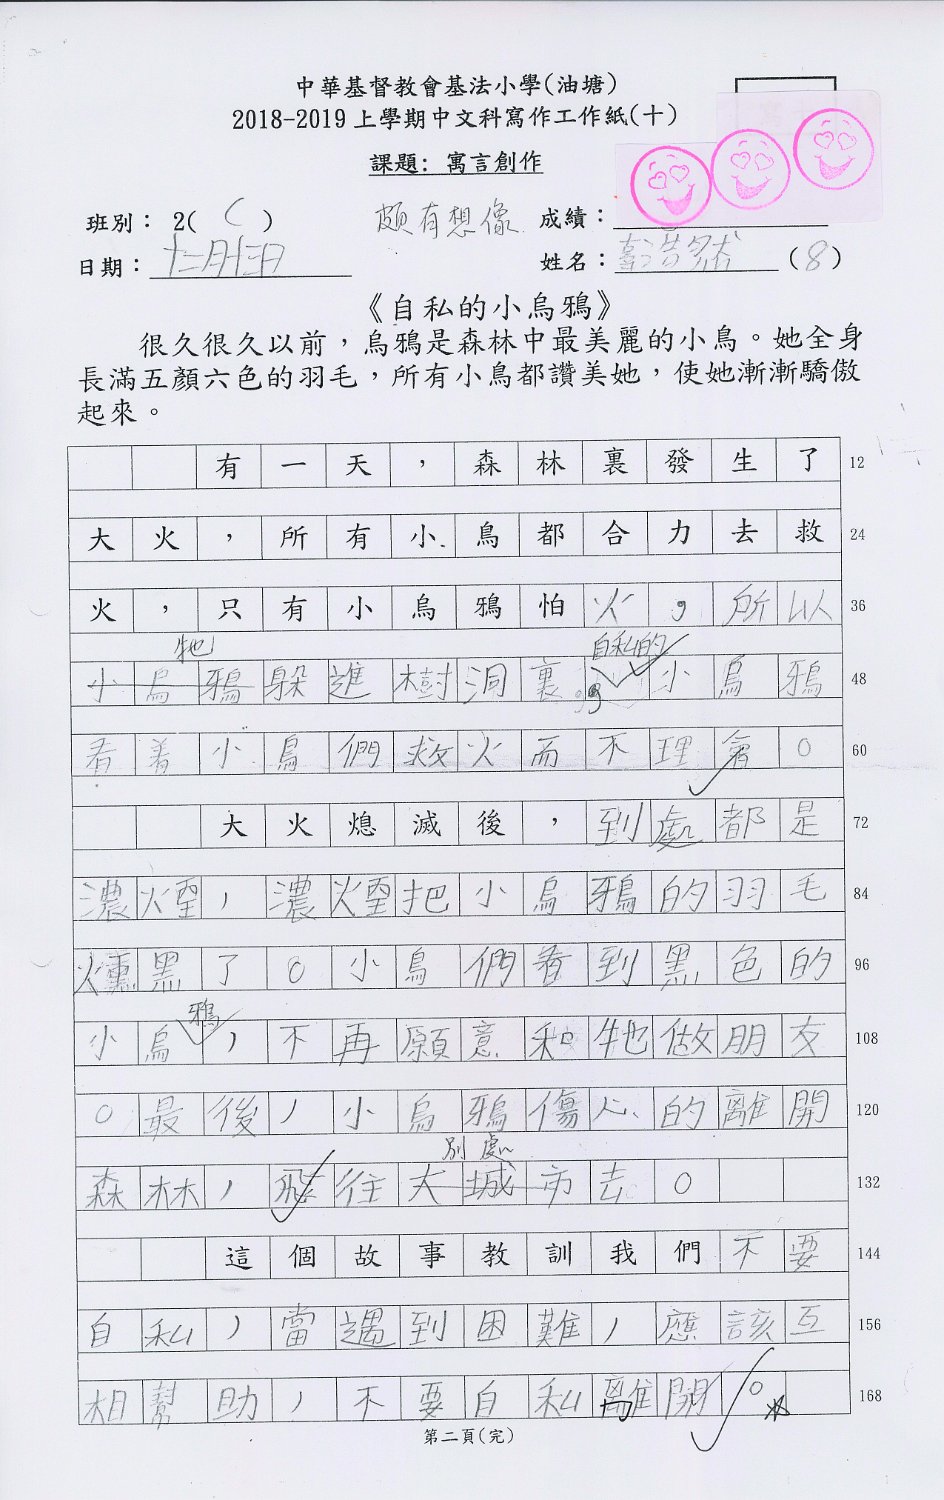 中華基督教會基法小學(油塘)
2018-2019上學期中文科寫作工作紙(十)
課題：寓言創作
班別： 2( C )
頗有想像 成績：
日期：十二月十三日
姓名： (8)
《自私的小烏鴉》
很久很久以前，烏鴉是森林中最美麗的小鳥。她全身
長滿五顏六色的羽毛，所有小鳥都讚美她，使她漸漸驕傲
起來。
有一天，森林裏發生了 12
大火，所有小鳥都合力去救 24
火，只有小烏鴉怕火，所以 36
牠 自私的
小烏鴉躲進樹洞裏，小烏鴉 48
看着小鳥們救火而不理會。 60
大火熄滅後，到處都是 72
濃煙，濃煙把小烏鴉的羽毛 84
燻黑了。小鳥們看到黑色的 96
鴉
小烏，不再願意和牠做朋友 108
。最後，小烏鴉傷心的離開 120
別處
森林，飛往大城市去。 132
這個故事教訓我們不要 144
自私，當遇到困難，應該互 156
相幫助，不要自私離開。 168
第二頁(完)